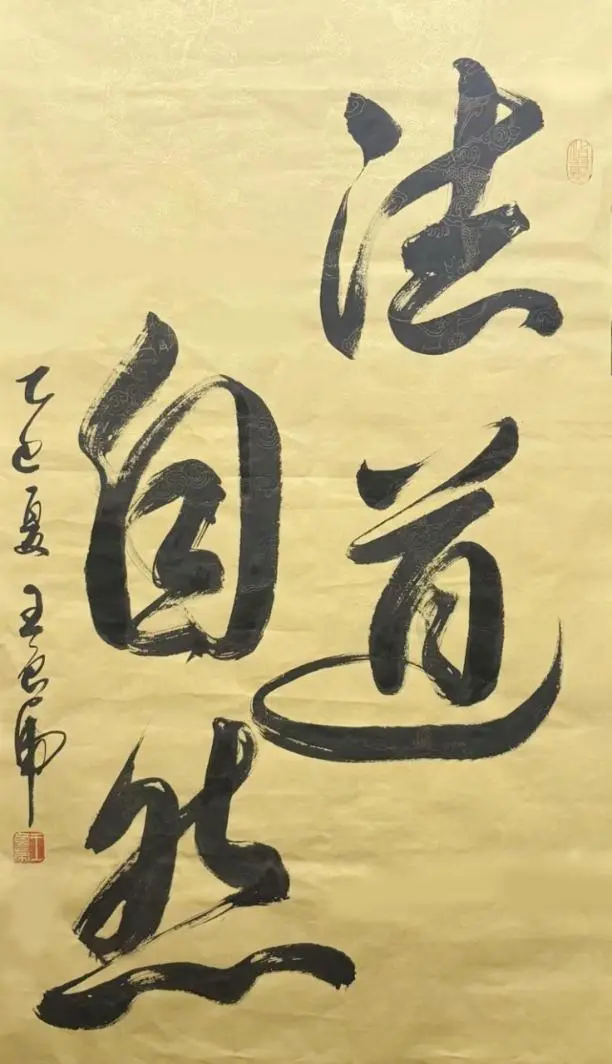 道法
自然
乙巳夏王